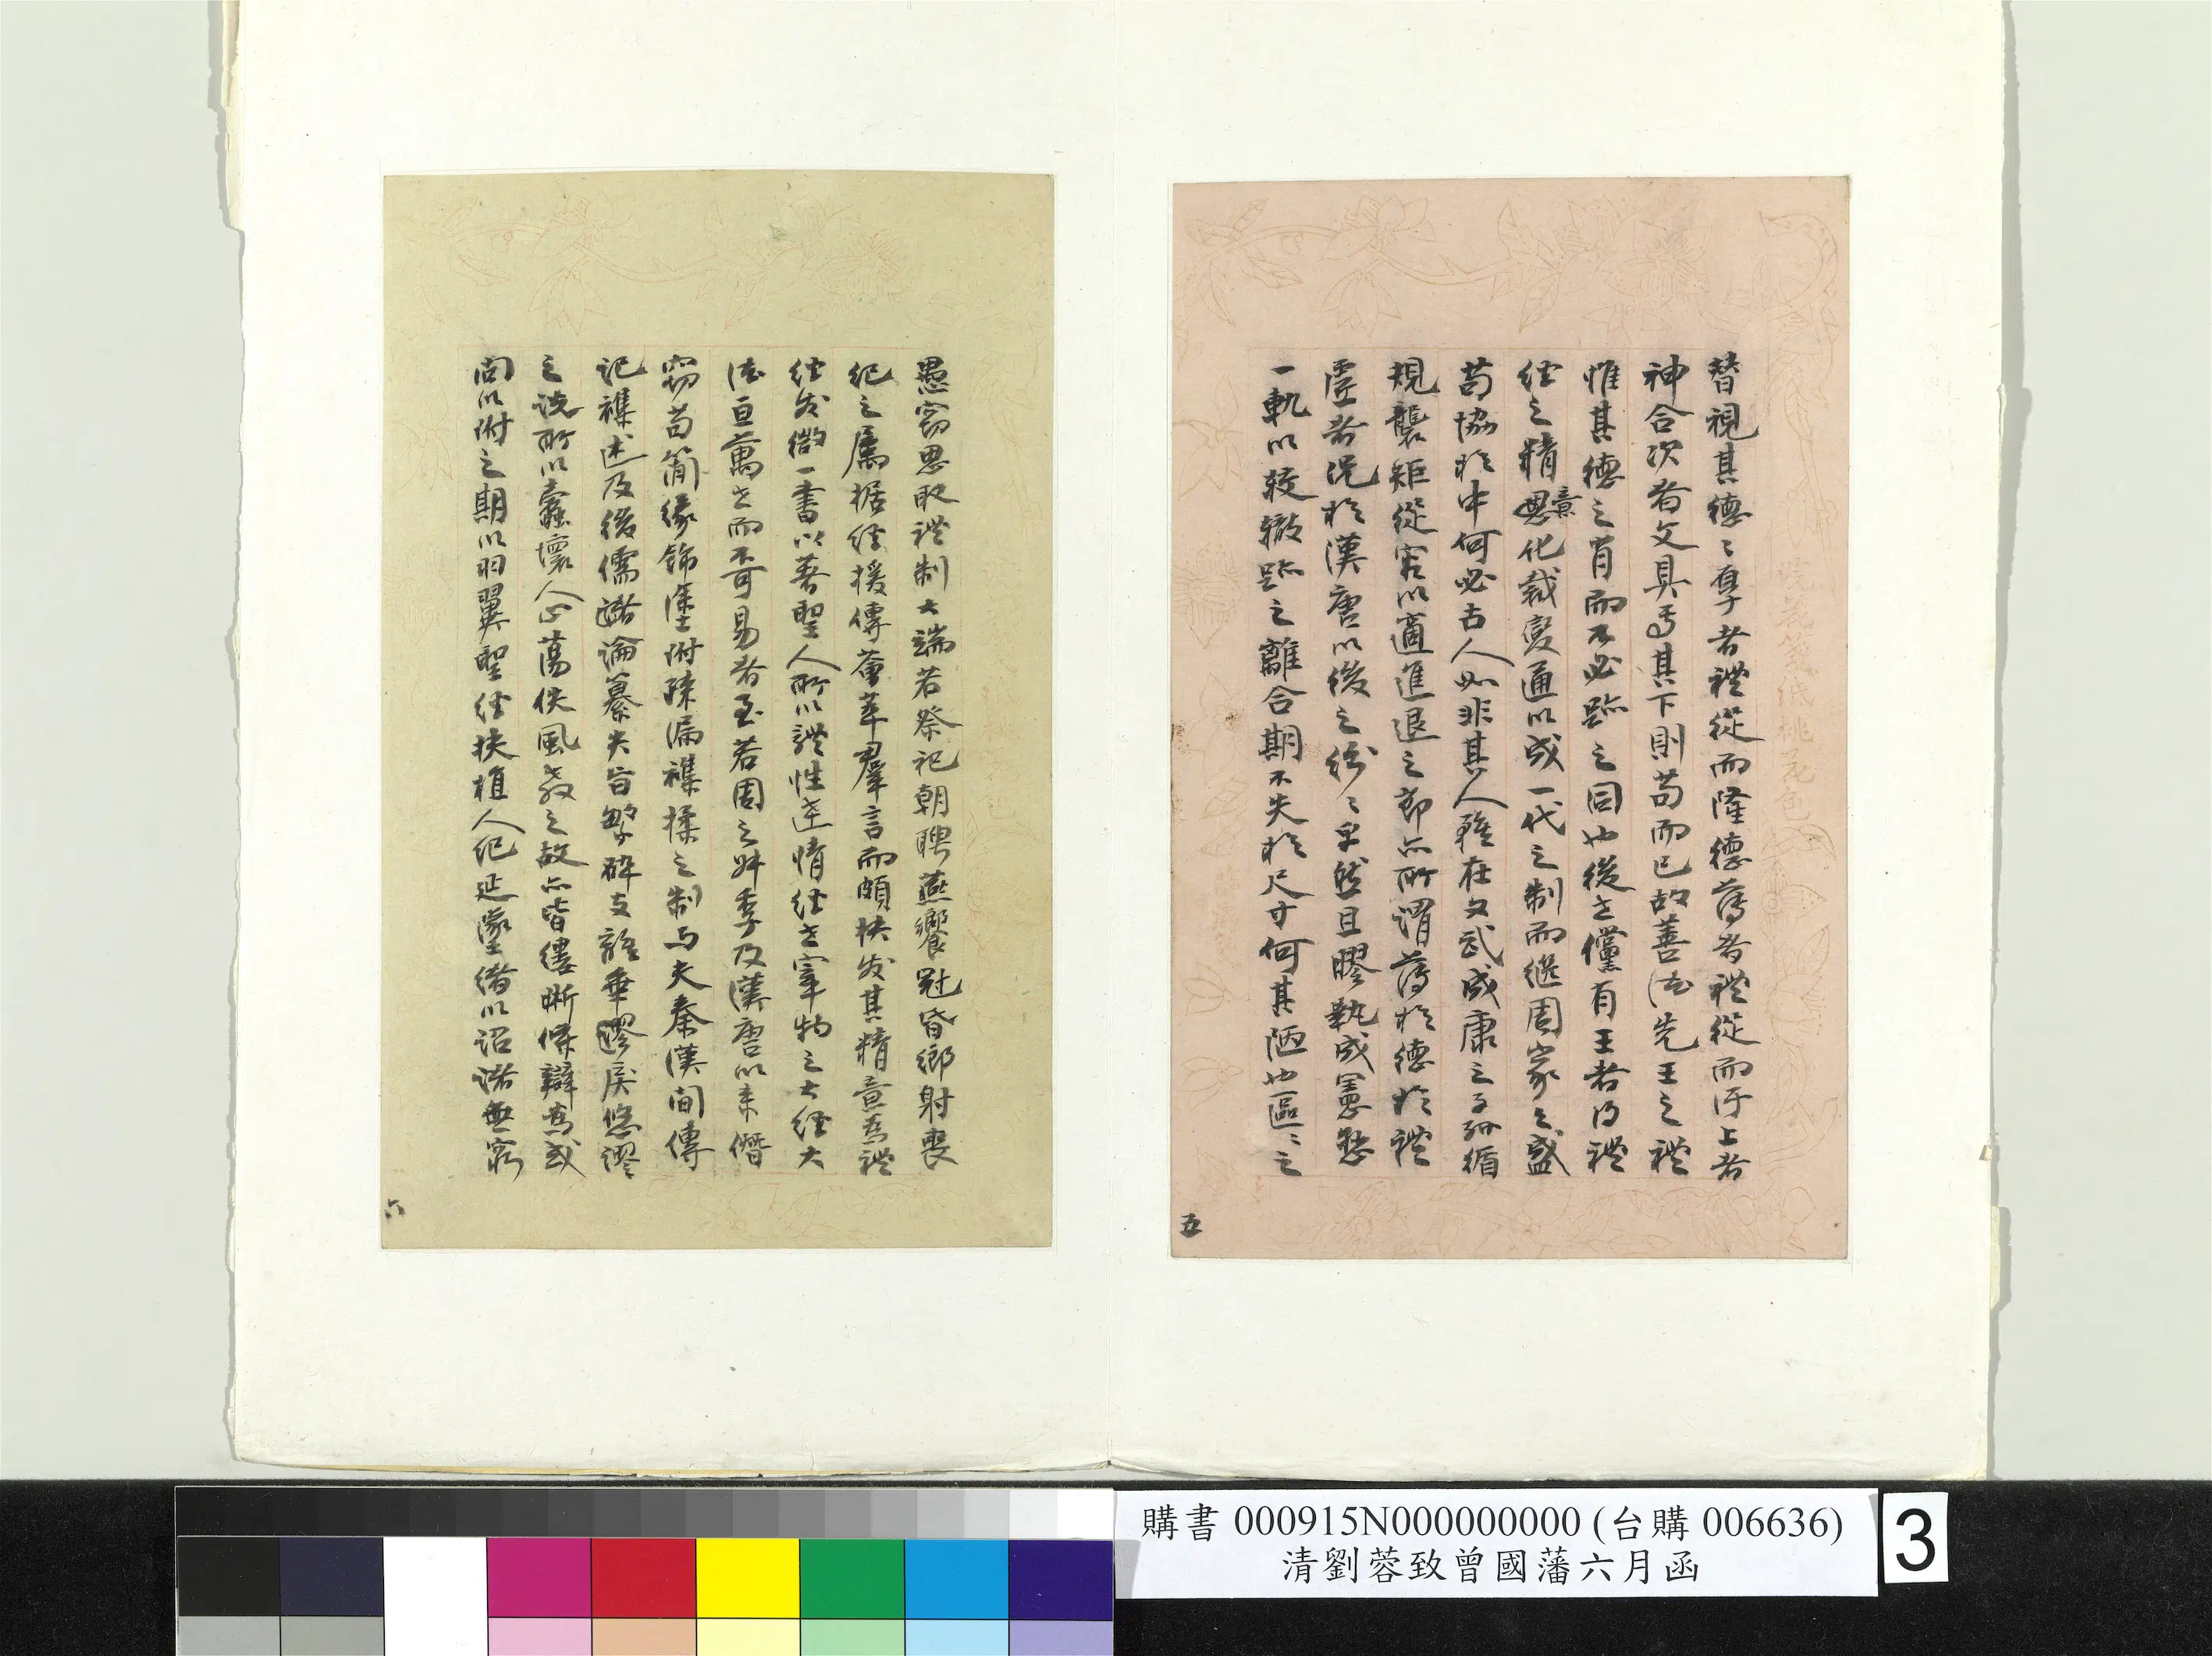 替視其德〻厚者禮從而隆德薄者禮從而汙上者
神合次者文具焉其下則苟而已故善法先王之禮
惟其德之肖而不必跡之同也後世儻有王者得禮
經之精意化裁變通以成一代之制而繼周家之盛
苟協於中何必古人如非其人雖在文武成康之子孫循
規襲矩從容以適進退之節亦所謂薄於德於禮
虛者況於漢唐以後之紛〻者然且膠執成憲懸
一軌以較轍跡之離合期不失於尺寸何其陋也區〻之
五
浣花箋紙桃花色
愚竊思取禮制大端若祭祀朝聘燕饗冠昏鄉射喪
紀之屬據經援傳薈萃羣言而頗抉发其精意為禮
經发微一書以著聖人所以體性達情經世宰物之大經大
法亘萬世而不可易者至若周之叔季及漢唐以來僭
竊苟簡緣飾塗附疎漏襍揉之制與夫秦漢間傳
記襍述及後儒諸論纂失旨繁碎支離乖謬戾悠謬
之說所以蠹壞人心蕩佚風教之故亦皆縷晰條辯為或
問以附之期以羽翼聖經扶植人紀延墜緒以詔諸無窮
六
購書 000915N000000000 (台購 006636)
清劉蓉致曾國藩六月函
3